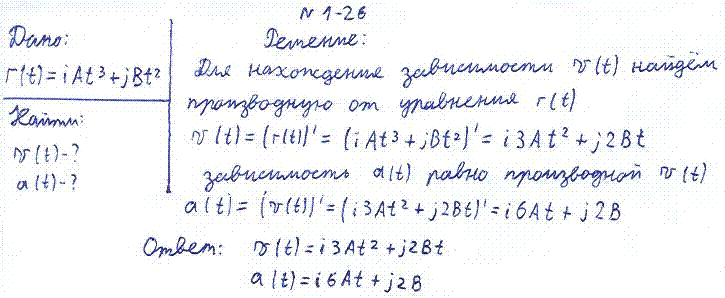 N 1-26
Дано:
r(t)=iAt³+jBt²
Найти:
v(t)-?
a(t)-?
Решение:
Для нахождение зависимости v(t) найдём
производную от уравнения r(t)
v(t)=(r(t))'=(iAt³+jBt²)'=i3At²+j2Bt
зависимость a(t) равно производной v(t)
a(t)=(v(t))'=(i3At²+j2Bt)'=i6At+j2B
Ответ: v(t)=i3At²+j2Bt
a(t)=i6At+j2B